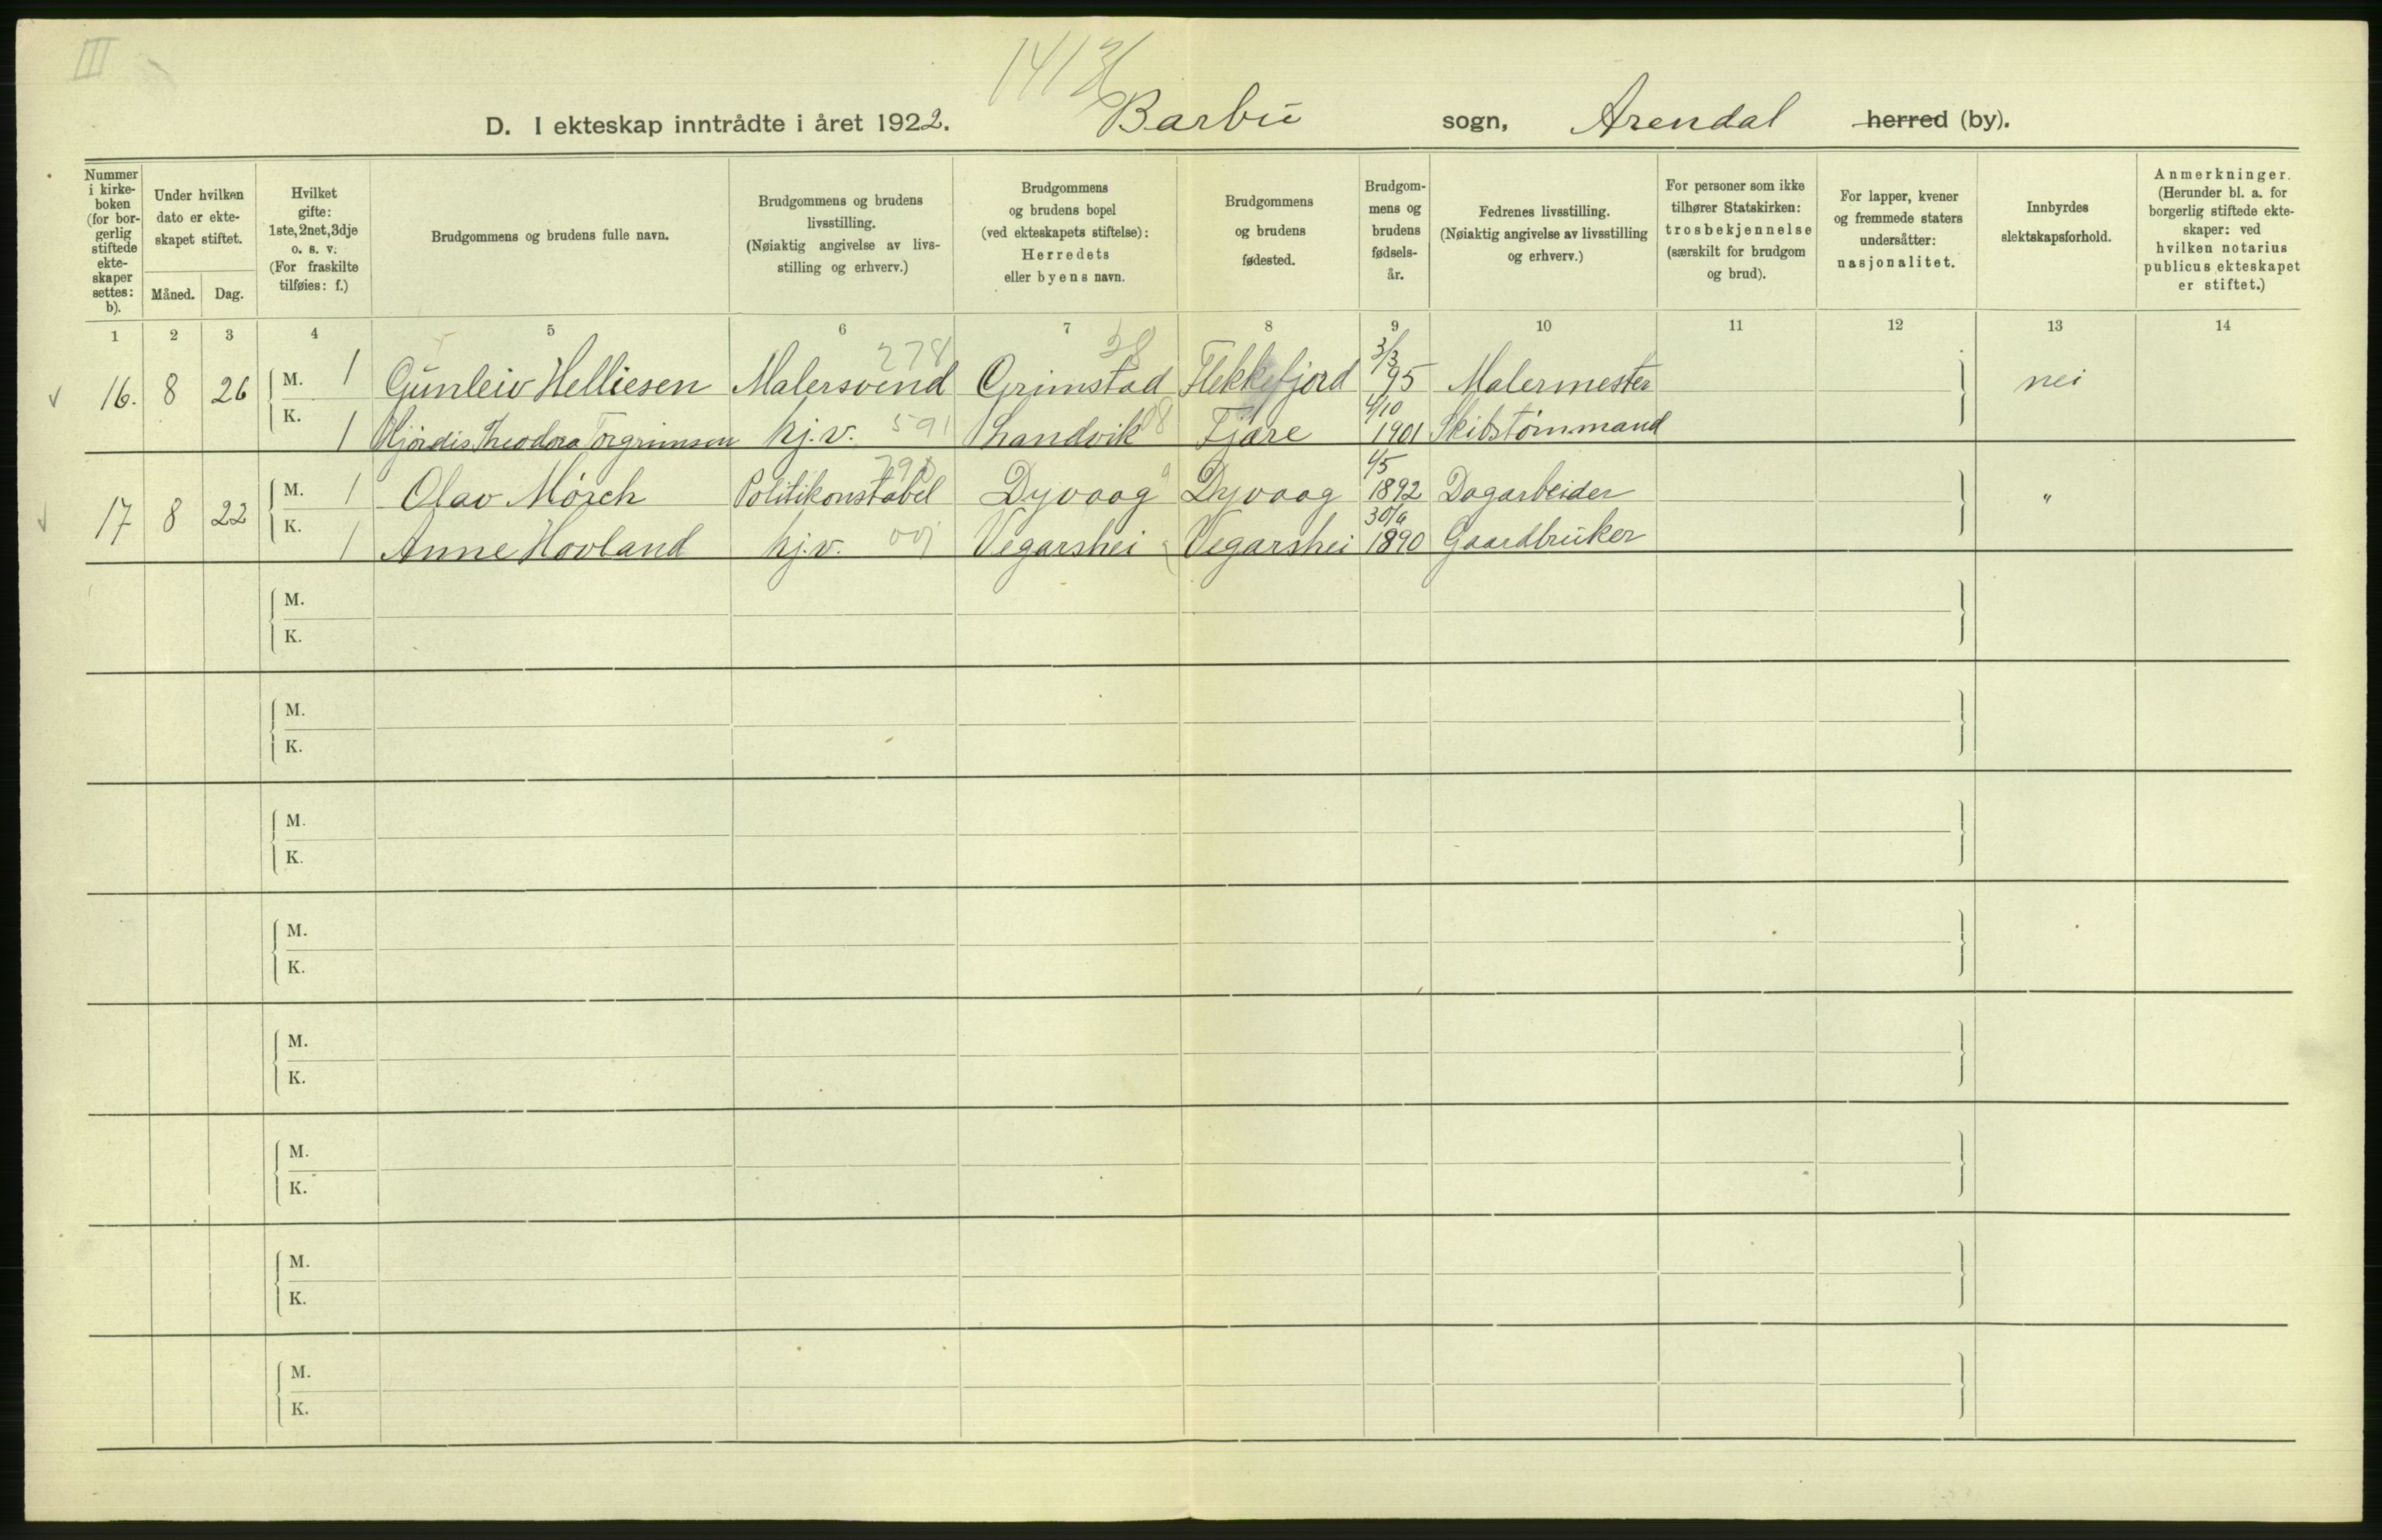 III
D. I ekteskap inntrådte i året 1922. Barbu sogn, Arendal herred (by).
Nummer i kirke-boken (for bor-gerlig stiftede ekte-skaper settes: b).
Under hvilken dato er ekte-skapet stiftet.
Måned. Dag.
Hvilket gifte: 1ste, 2net, 3dje o. s. v. (For fraskilte tilføies: f.)
Brudgommens og brudens fulle navn.
Brudgommens og brudens livsstilling. (Nøiaktig angivelse av livs-stilling og erhverv.)
Brudgommens og brudens bopel (ved ekteskapets stiftelse): Herredets eller byens navn.
Brudgommens og brudens fødested.
Brudgom-mens og brudens fødsels-år.
Fedrenes livsstilling. (Nøiaktig angivelse av livsstilling og erhverv.)
For personer som ikke tilhører Statskirken: trosbekjennelse (særskilt for brudgom og brud).
For lapper, kvener og fremmede staters undersåtter: nasjonalitet.
Innbyrdes slektskapsforhold.
Anmerkninger. (Herunder bl. a. for borgerlig stiftede ekte-skaper: ved hvilken notarius publicus ekteskapet er stiftet.)
1 2 3 4 5 6 7 8 9 10 11 12 13 14
278 28 3/3
16. 8 26 M. 1 Gunleiv Helliesen Malersvend Grimstad Flekkefjord 95 Malermester nei
4/10
K. 1 Hjördis Theodora Torgrimsen hj.v. 591 Landvik Fjære 1901 Skibstømmand
4/5
17 8 22 M. 1 Olav Mörch Politikonstabel Dyvaag Dyvaag 1892 Dagarbeider "
K. 1 Anne Hovland hj.v. Vegarshei Vegarshei 1890 Gaardbruker
M.
K.
M.
K.
M.
K.
M.
K.
M.
K.
M.
K.
M.
K.
M.
K.